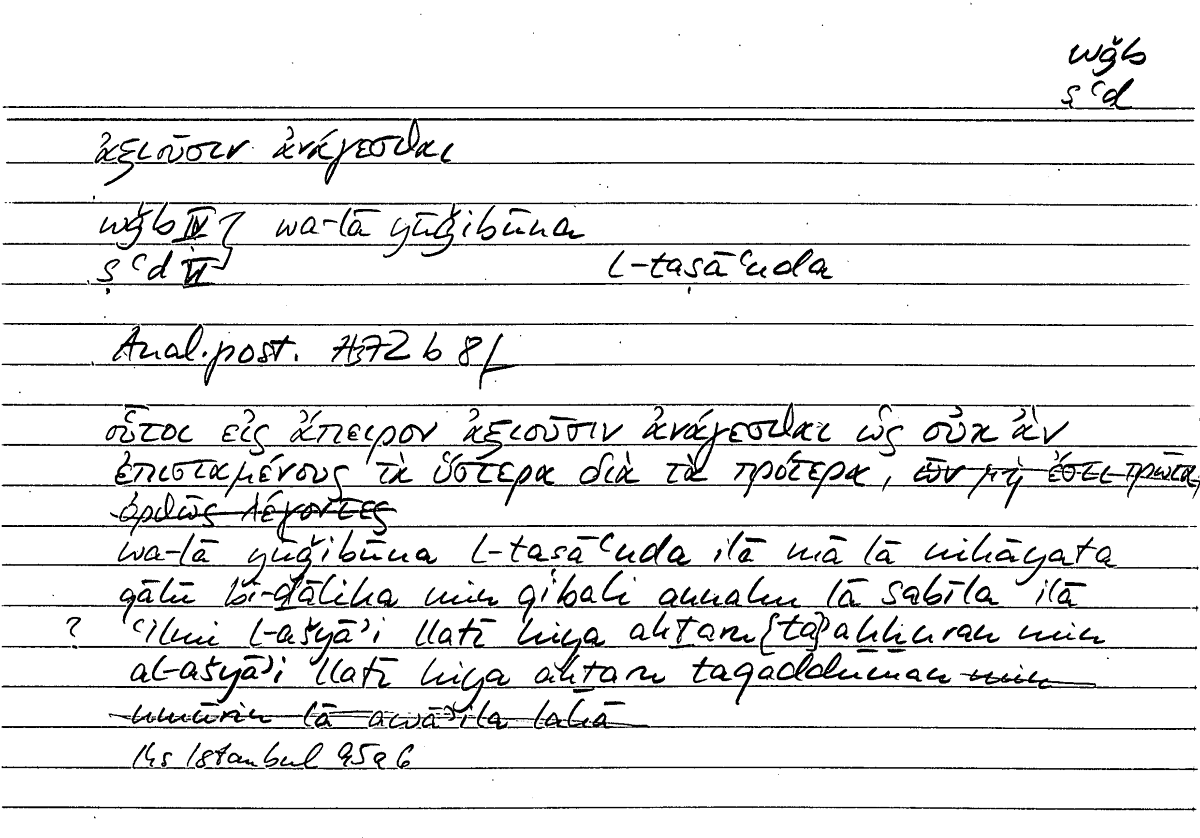 wǧb
ṣʿd
ἀξιοῦσιν ἀνάγεσθαι
wǧb IV } wa-lā yūǧibūna
ṣʿd VI l-taṣāʿuda
Anal. post. A3 72 b 8f
οὗτοι εἰς ἄπειρον ἀξιοῦσιν ἀνάγεσθαι ὡς οὐκ ἂν
ἐπισταμένους τὰ ὕστερα διὰ τὰ πρότερα, ὧν μή ἐστι πρῶτα,
ὀρθῶς λέγοντες
wa-lā yūǧibūna l-taṣāʿuda ilā mā lā nihāyata
qālū bi-ḏālika min qibali annahu lā sabīla ilā
? ʿilmi l-ašyāʾi llatī hiya akṯaru {ta}ʾaḫḫuran min
al-ašyāʾi llatī hiya akṯaru taqadduman min
umūrin lā awāʾila lahā
Hs Istanbul